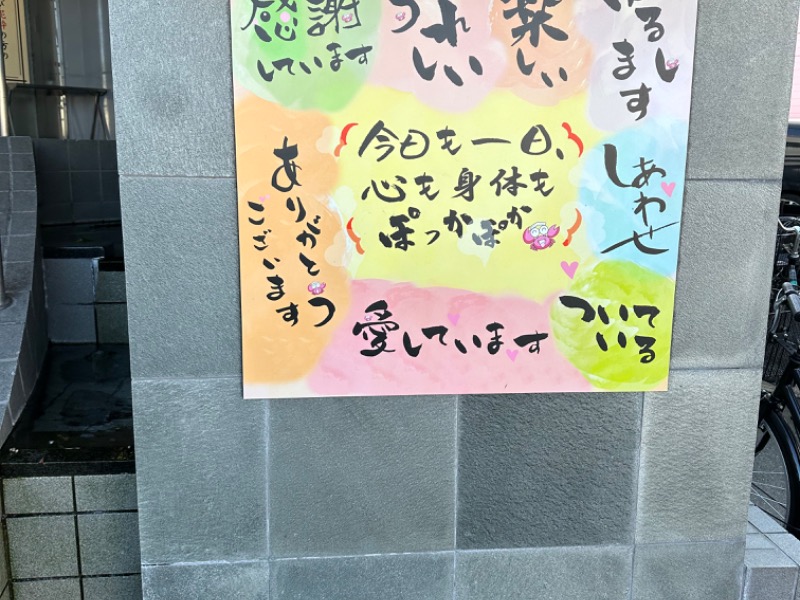 感謝
しています
うれ
しい
楽
しい
ゆるし
ます
今日も一日、
心も身体も
ぽっかぽか
ありがとう
ございます
しあわせ
愛しています
ついて
いる